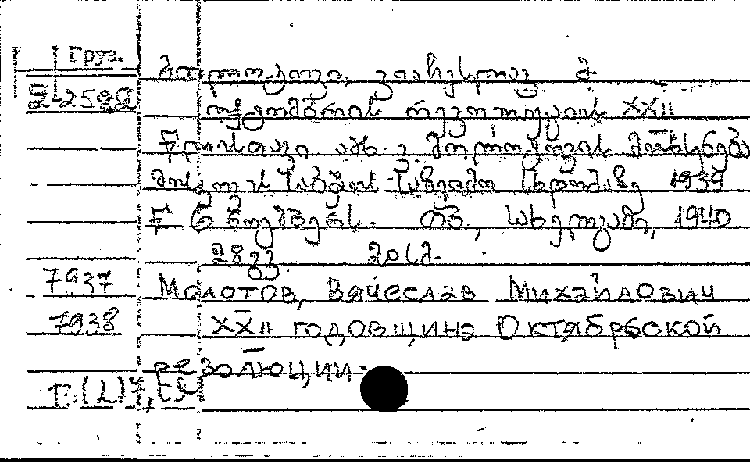 Груз.
მოლოტოვი, ვიაჩესლავ მ.
2-2582 ოქტომბრის რევოლუციის XXII
წლისთავი. ამხ. ვ. მოლოტოვის მოხსენება
მოსკოვის საბჭოს საზეიმო სხდომაზე 1939
წ. 6 ნოემბერს. თბ., სახელგამი, 1940
28 გვ. 20 სმ.
7937 Молотов, Вячеслав Михайлович
7938 XXII годовщина Октябрьской
революции.